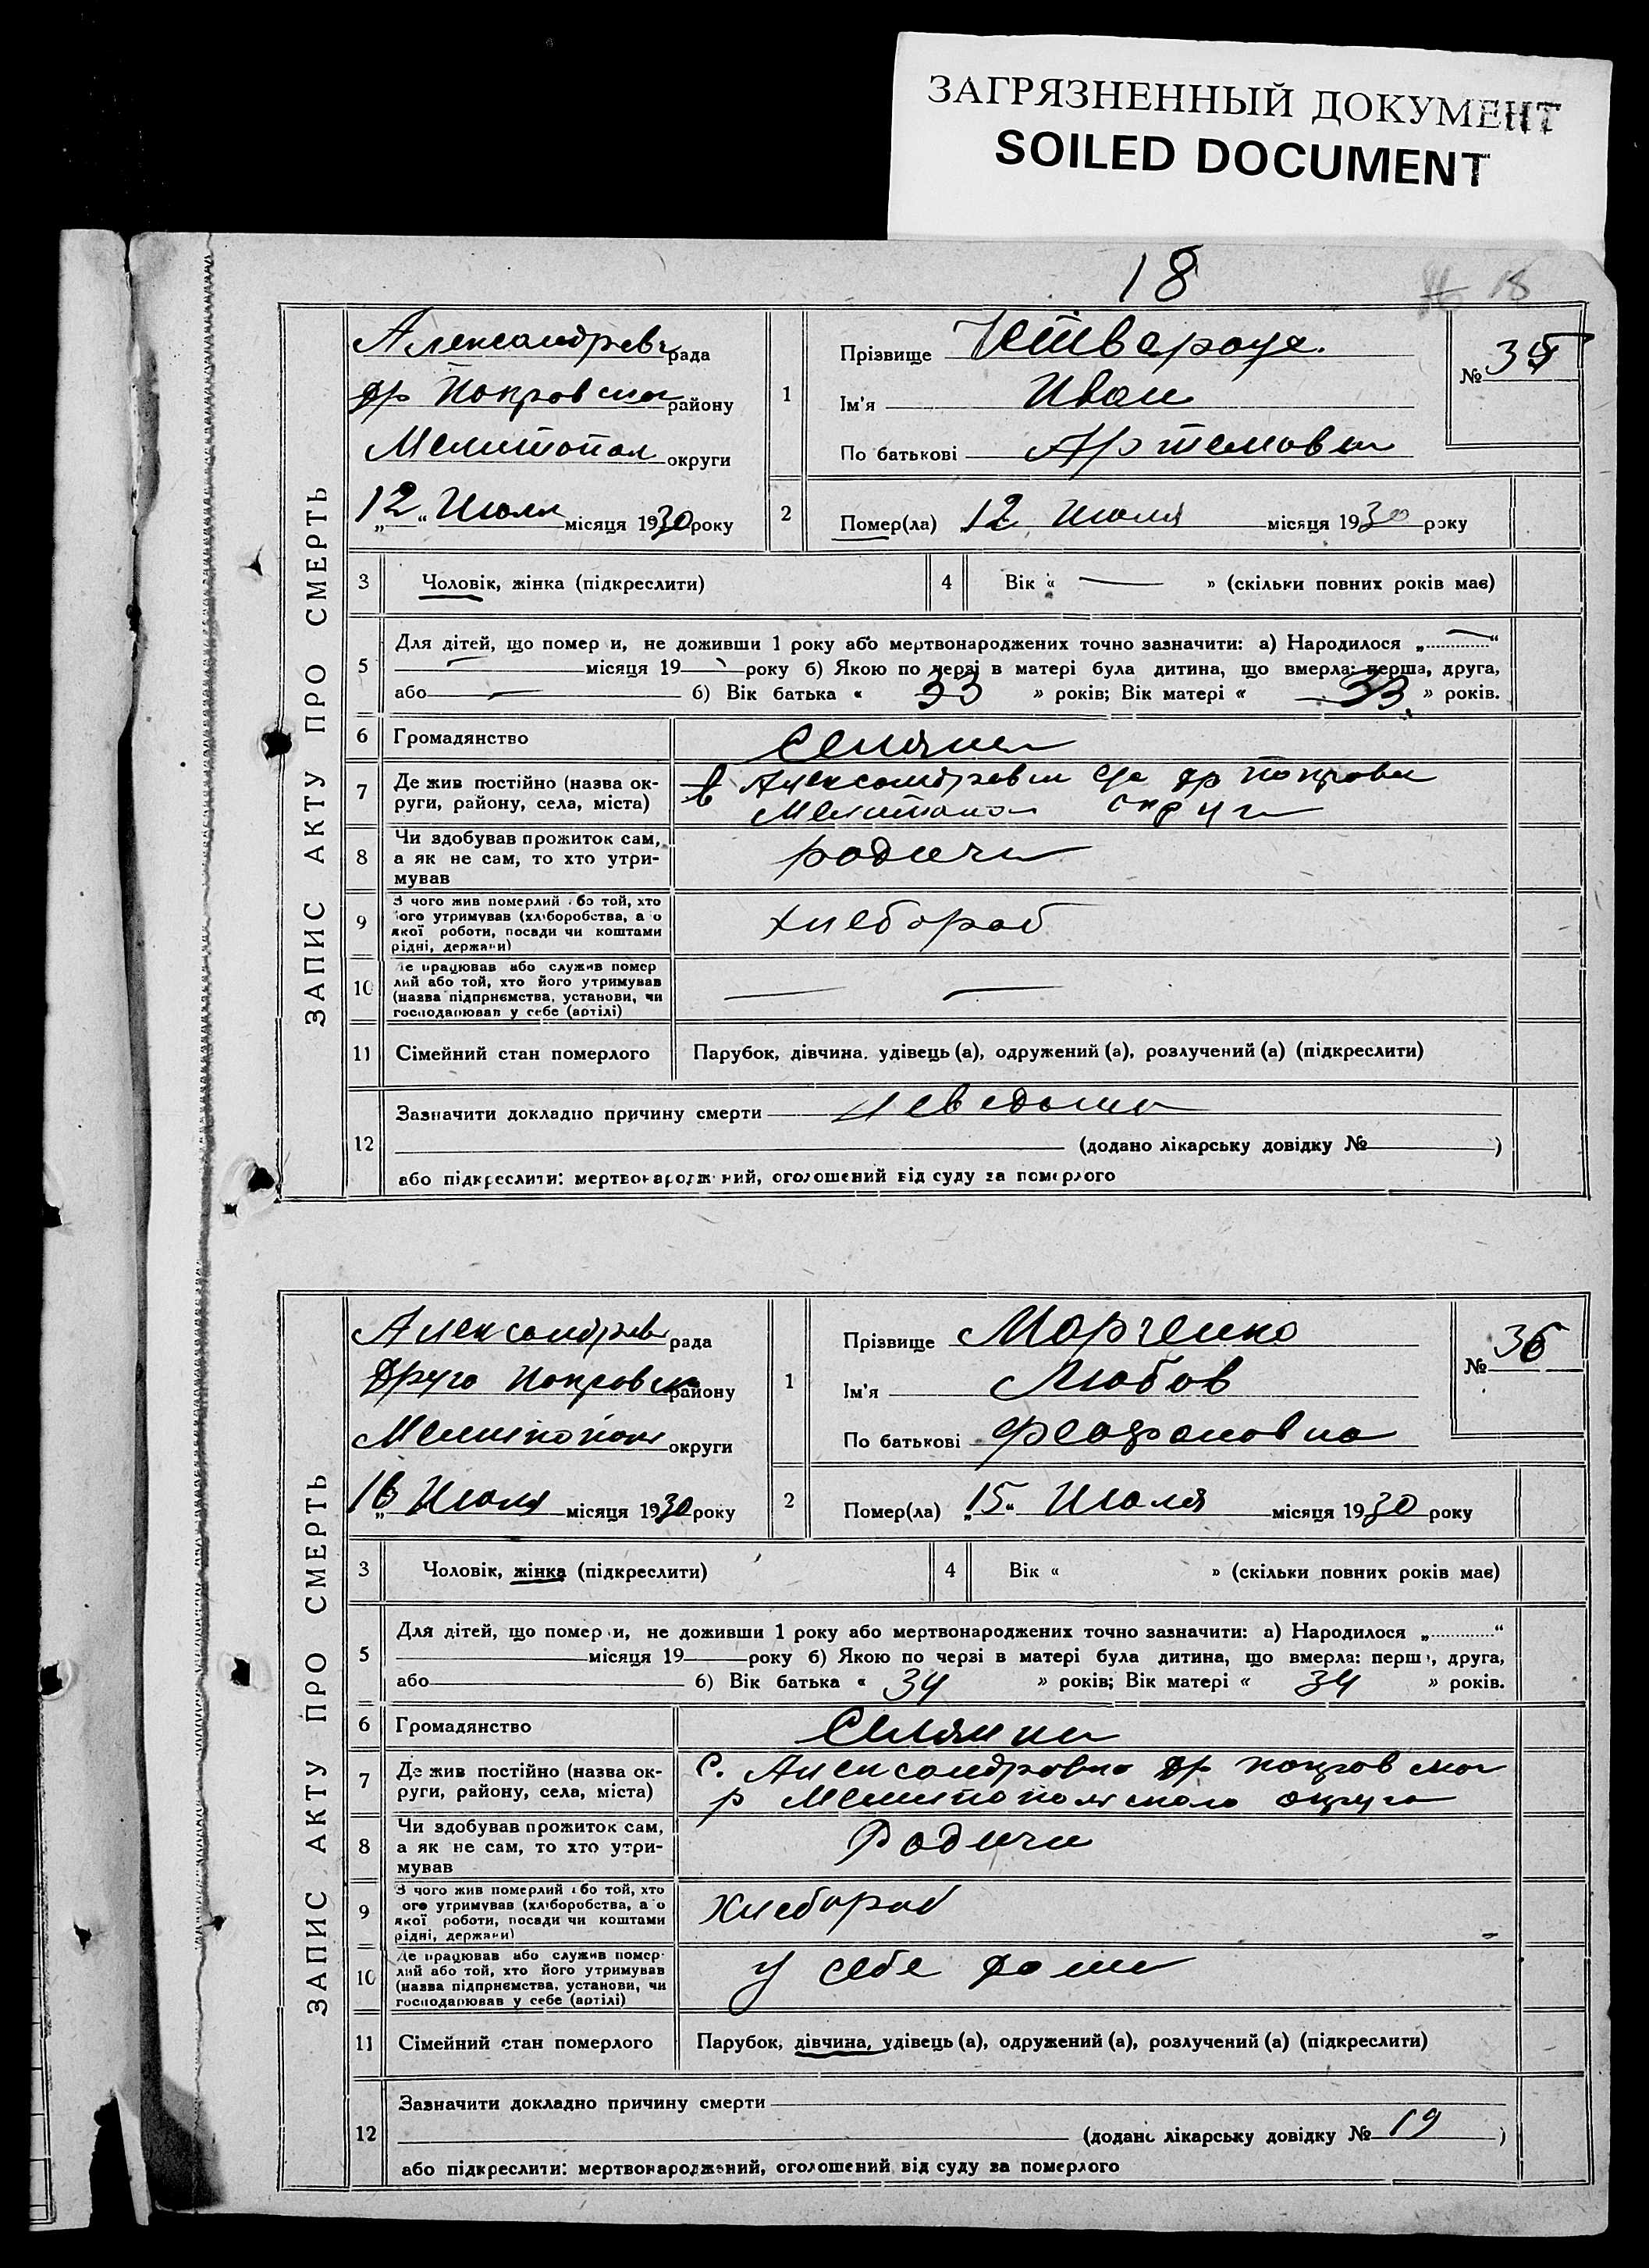 ЗАГРЯЗНЕННЫЙ ДОКУМЕНТ
SOILED DOCUMENT
18
18
ЗАПИС АКТУ ПРО СМЕРТЬ
Александрев рада
др Покровског району
Мелитопол округи
„12“ Июля місяця 1930 року
1 Прізвище
Ім'я Иван
По батькові Артемович
№ 35
2 Помер(ла) 12 Июля місяця 1930 року
3 Чоловік, жінка (підкреслити)
4 Вік « — » (скільки повних років має)
5 Для дітей, що помер и, не доживши 1 року або мертвонароджених точно зазначити: а) Народилося „ — “
— місяця 19 — року б) Якою по черзі в матері була дитина, що вмерла: перша, друга,
або — б) Вік батька « 33 » років; Вік матері « 33 » років.
6 Громадянство Селянин
7 Де жив постійно (назва ок-
руги, району, села, міста)
в Александревки др покровск
Мелитопол округи
8 Чи здобував прожиток сам,
а як не сам, то хто утри-
мував
родичи
9 З чого жив померлий або той, хто
ого утримував (хліборобства, а о
якої роботи, посади чи коштами
рідні, держави)
хлебороб
10 Де працював або служив помер
лий або той, хто його утримував
(назва підприємства, установи, чи
господарював у себе (артілі)
— —
11 Сімейний стан померлого Парубок, дівчина, удівець (а), одружений (а), розлучений (а) (підкреслити)
12 Зазначити докладно причину смерти неведомо
(додано лікарську довідку № )
або підкреслити: мертвонароджений, оголошений від суду за померлого
ЗАПИС АКТУ ПРО СМЕРТЬ
Александрев рада
Друго Покровск району
Мелитопол округи
„16 Июля місяця 1930 року
1 Прізвище Марченко
Ім'я Любов
По батькові Феофановна
№ 36
2 Помер(ла) „15“ Июля місяця 1930 року
3 Чоловік, жінка (підкреслити)
4 Вік « » (скільки повних років має)
5 Для дітей, що помер и, не доживши 1 року або мертвонароджених точно зазначити: а) Народилося „ “
місяця 19 року б) Якою по черзі в матері була дитина, що вмерла: перш , друга,
або б) Вік батька « 34 » років; Вік матері « 34 » років.
6 Громадянство Селянка
7 Де жив постійно (назва ок-
руги, району, села, міста)
с. Александровка др покровског
р Мелитопольского округа
8 Чи здобував прожиток сам,
а як не сам, то хто утри-
мував
Родичи
9 З чого жив померлий або той, хто
ого утримував (хліборобства, а о
якої роботи, посади чи коштами
рідні, держави)
Хлебороб
10 Де працював або служив помер-
лий або той, хто його утримував
(назва підприємства, установи, чи
господарював у себе (артілі)
у себе доми
11 Сімейний стан померлого Парубок, дівчина, удівець (а), одружений (а), розлучений (а) (підкреслити)
12 Зазначити докладно причину смерти
(додано лікарську довідку № 19 )
або підкреслити: мертвонароджений, оголошений від суду за померлого